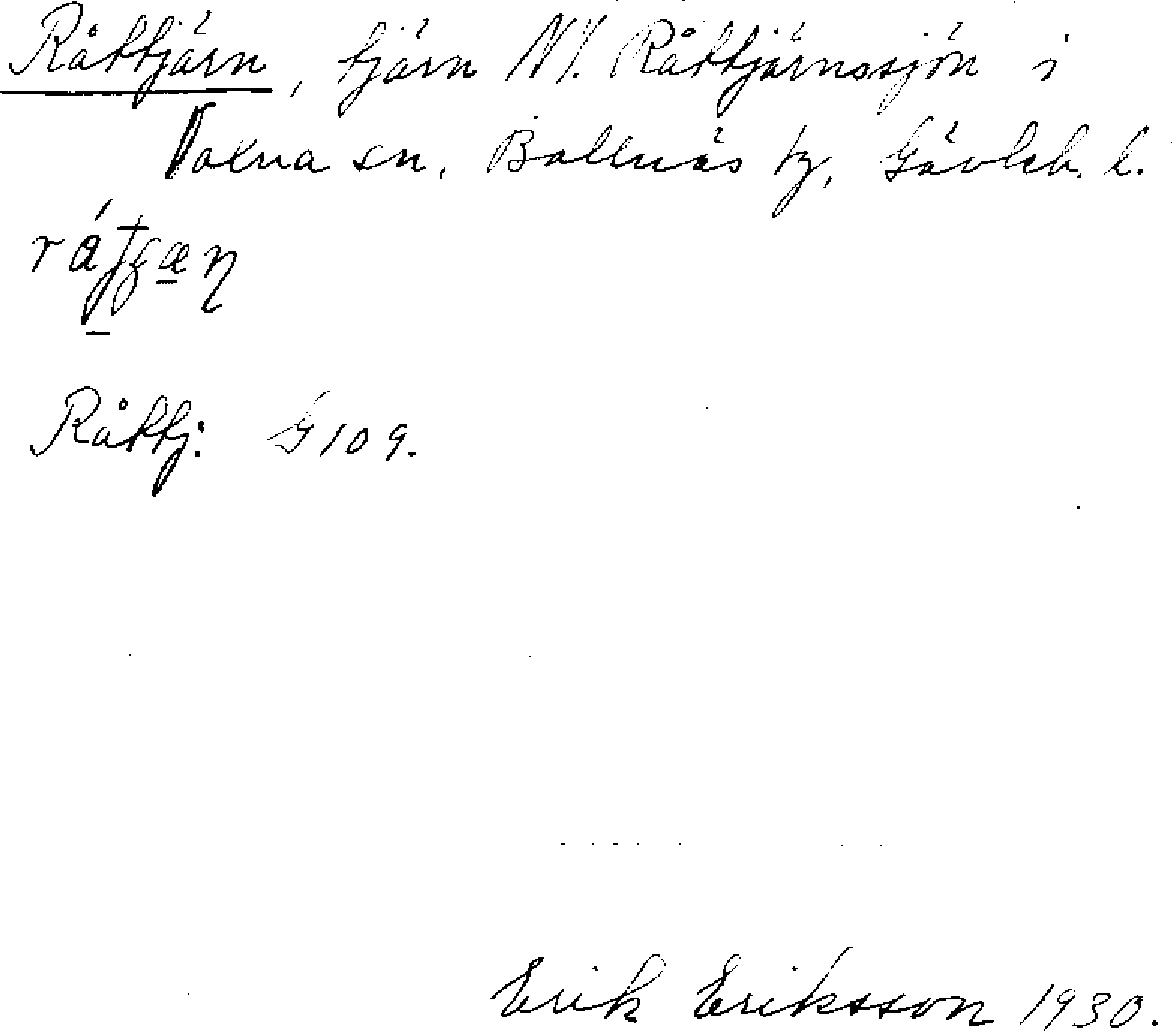 Råttjärn, tjärn NV. Råttjärnssjön i
Voxna sn, Bollnäs tg, Gävleb. l.
Råttj: G 109.
Erik Eriksson 1930.